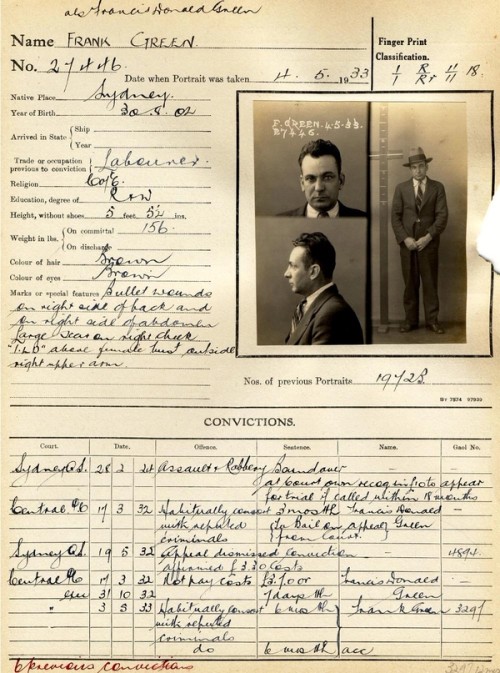 als Francis Donald Green
Name FRANK GREEN.
No. 27446. Date when Portrait was taken 4. 5. 1933
Finger Print
Classification.
1 R 11 18.
1 Rr 11
Native Place Sydney.
Year of Birth 30. 8. 02
Arrived in State { Ship
Year
Trade or occupation previous to conviction } Labourer.
Religion C of E.
Education, degree of R & W
Height, without shoes 5 feet 5½ ins.
Weight in lbs. { On committal 156.
On discharge
Colour of hair Brown
Colour of eyes Brown
Marks or special features Bullet wounds
on right side of back and
on right side of abdomen
Large scar on right cheek
above female bust outside
right upper arm.
F. GREEN. 4-5-33.
27446.
Nos. of previous Portraits 19728.
CONVICTIONS.
Court. Date. Offence. Sentence. Name. Gaol No.
Sydney Q.S. 28 2 24 Assault & Robbery Boundover —
at Court own recog in £10 to appear
for trial if called within 18 months
Central P.C. 17 3 32 Habitually consort 3 mos HL Francis Donald —
with reputed (To Bail on appeal) Green
criminals from Court.
Sydney Q.S. 19 5 32 Appeal dismissed Conviction — 4894.
affirmed £3.30 Costs
Central P.C. 17 3 32 Not pay costs £3/- or Francis Donald —
31 10 32 7 days HL Green
" 3 5 33 Habitually consort 6 mos HL Frank Green 3297
with reputed
criminals
do 6 mos HL acc
6 previous convictions